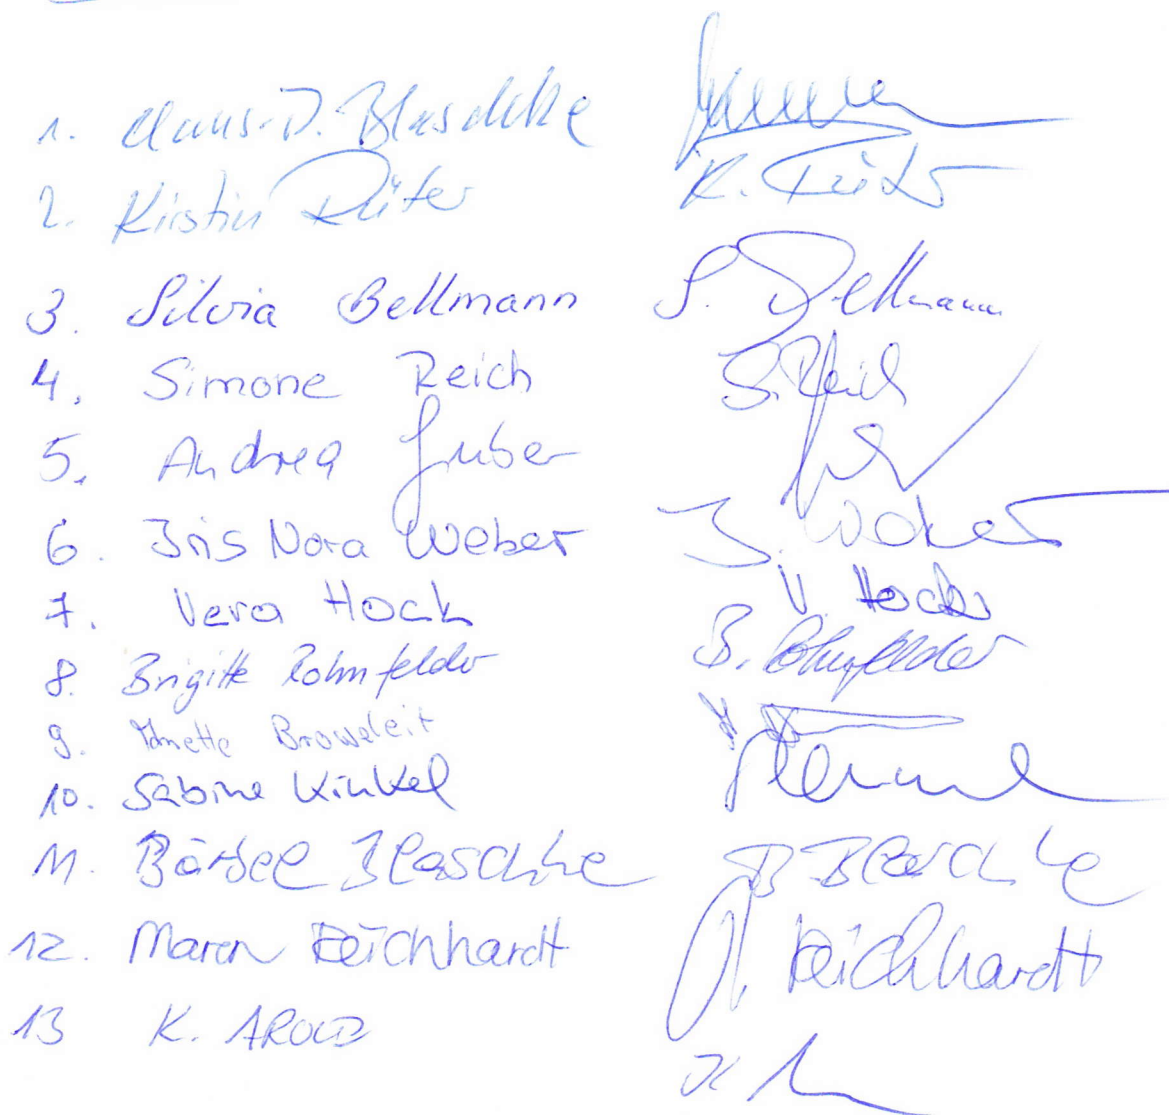 1. Claus-D. Blaschke
2. Kirstin Rüter K. Rüter
3. Silvia Bellmann S. Bellmann
4. Simone Reich S. Reich
5. Andrea Gruber
6. Iris Nora Weber I. Weber
7. Vera Hock V. Hock
8. Brigitte Rohnfelder B. Rohnfelder
9. Annette Broweleit
10. Sabine Kinkel
11. Bärbel Blaschke B Blaschke
12. Maren Reichhardt M. Reichhardt
13 K. AROLD